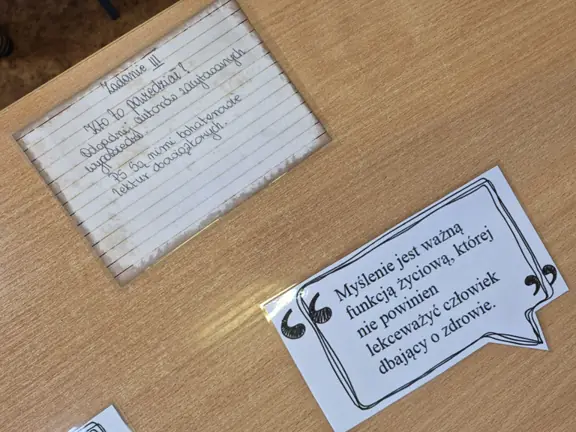 Zadanie III
Kto to powiedział?
Odgadnij autorów zacytowanych
wypowiedzi.
PS Są nimi bohaterowie
lektur obowiązkowych.
Myślenie jest ważną
funkcją życiową, której
nie powinien
lekceważyć człowiek
dbający o zdrowie.